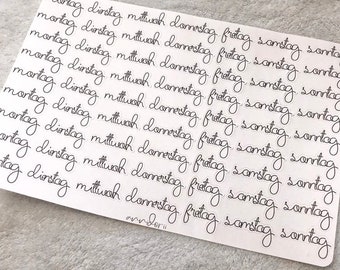 montag dienstag mittwoch donnerstag freitag samstag sonntag
montag dienstag mittwoch donnerstag freitag samstag sonntag
montag dienstag mittwoch donnerstag freitag samstag sonntag
montag dienstag mittwoch donnerstag freitag samstag sonntag
montag dienstag mittwoch donnerstag freitag samstag sonntag
montag dienstag mittwoch donnerstag freitag samstag sonntag
montag dienstag mittwoch donnerstag freitag samstag sonntag
montag dienstag mittwoch donnerstag freitag samstag sonntag